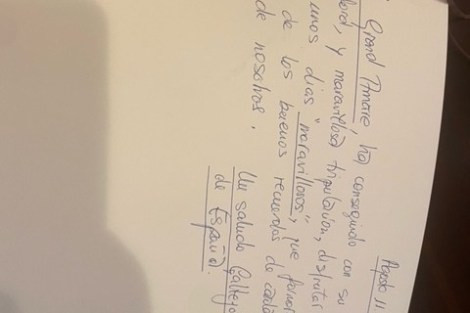 Agosto 11
Grand Amore, ha conseguido con su
y maravillosa tripulación, disfrutar
unos días "maravillosos", que
de los buenos recuerdos de cada
de nosotros.
Un saludo
de España.